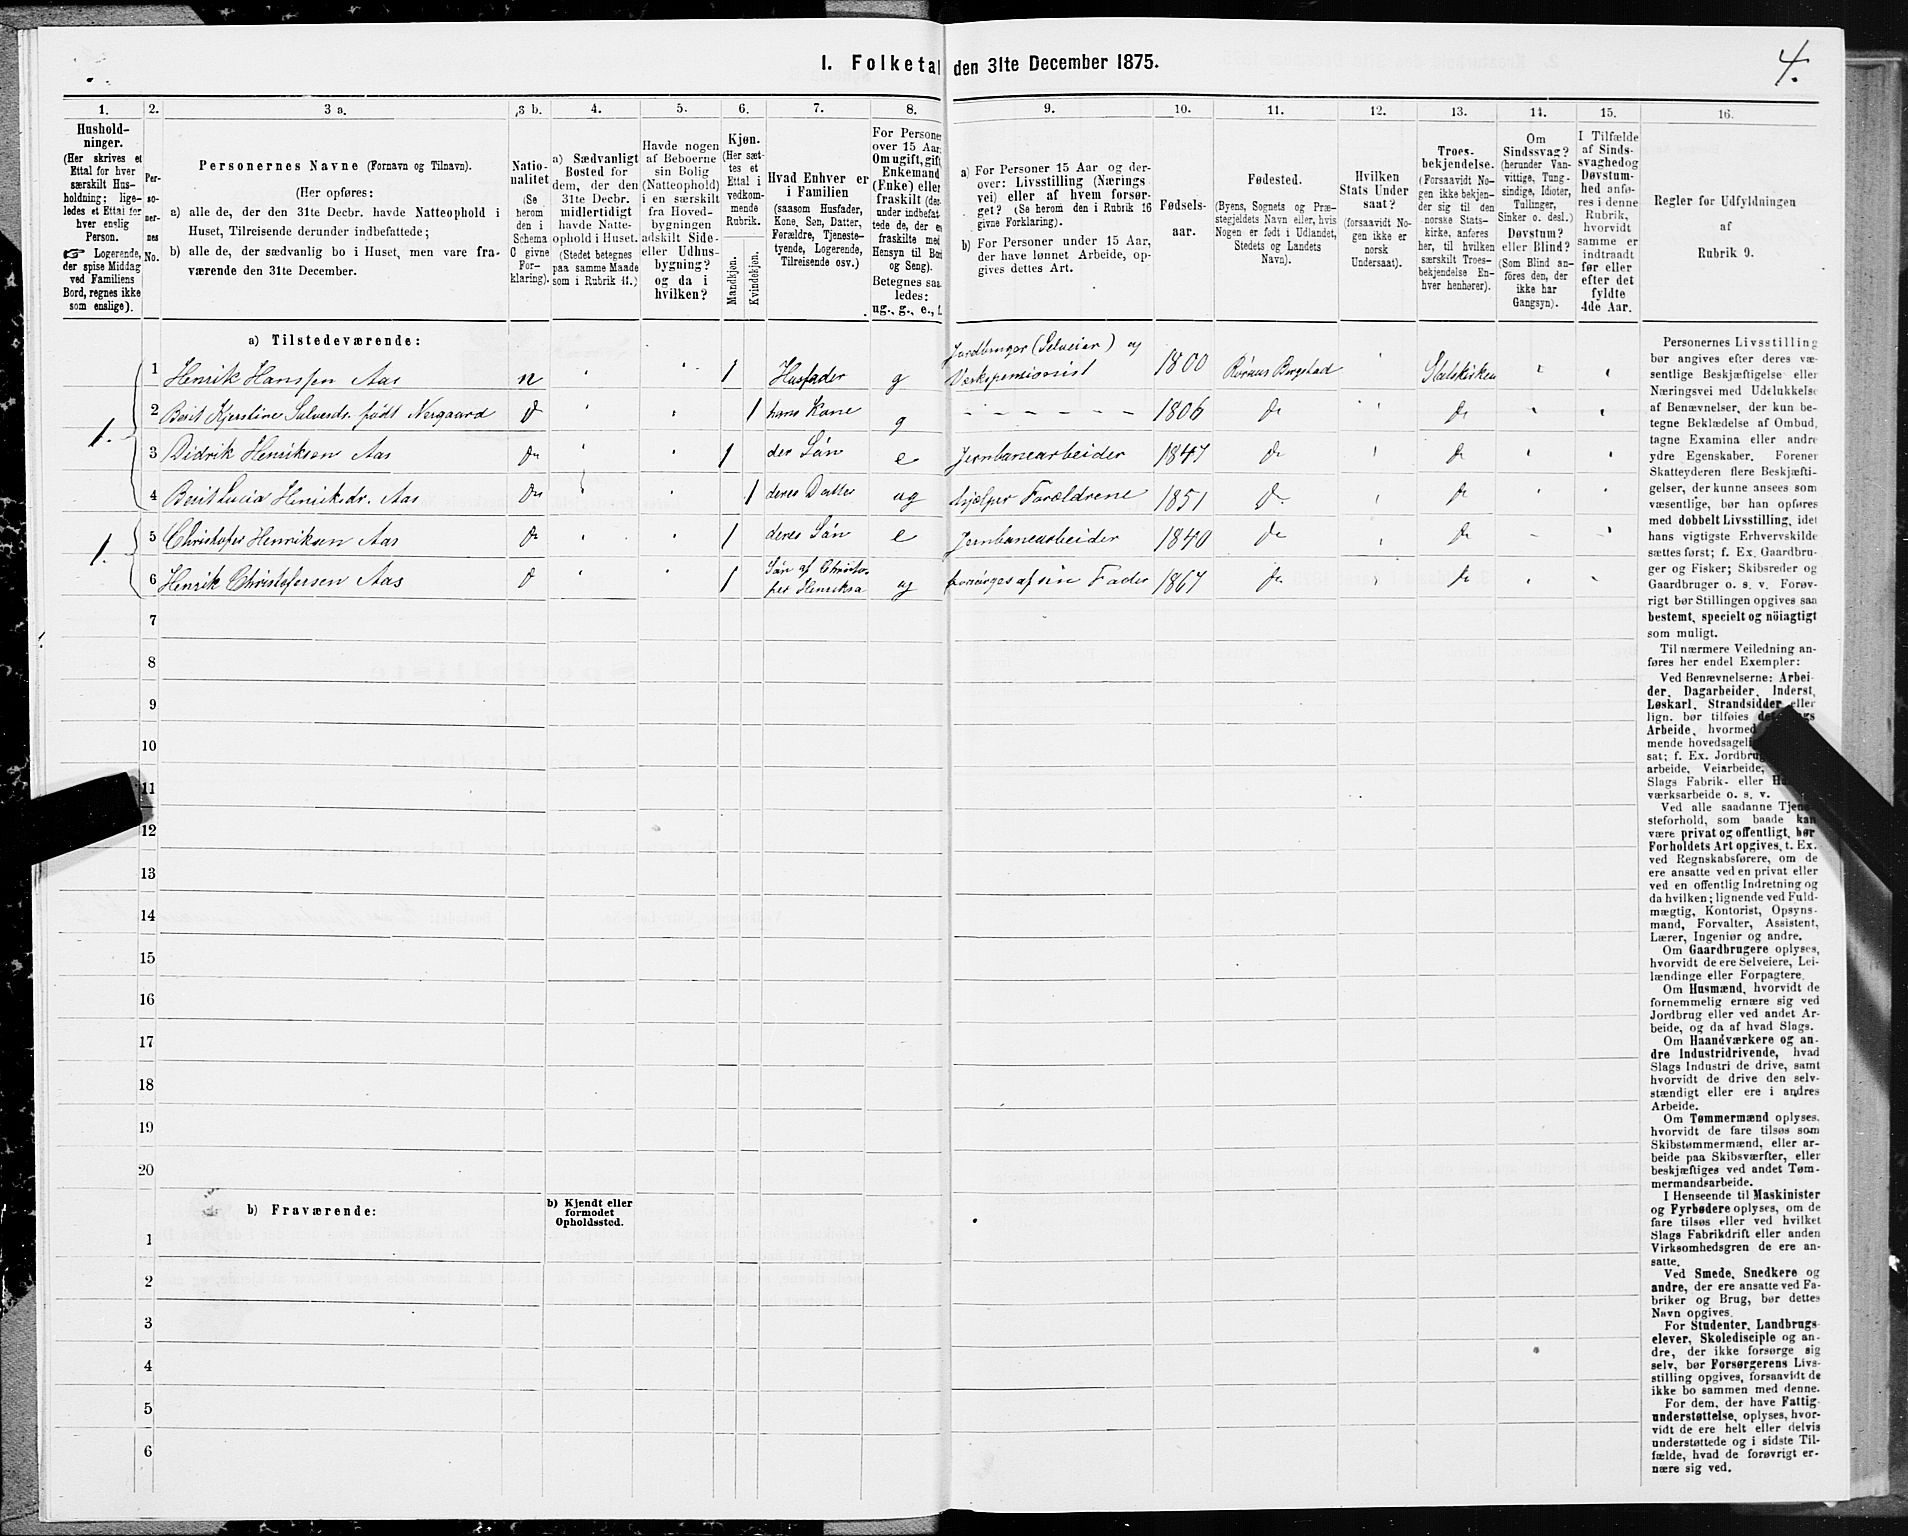 I. Folketal den 31te December 1875.
4.
1.
2.
3 a.
3 b.
4.
5.
6.
7.
8.
9.
10.
11.
12.
13.
14.
15.
16.
Hushold-
ninger.
(Her skrives et
Ettal for hver
særskilt Hus-
holdning; lige-
ledes et Ettal for
hver enslig
Person.
☞ Logerende,
der spise Middag
ved Familiens
Bord, regnes ikke
som enslige).
Per-
so-
ner-
nes
No.
Personernes Navne (Fornavn og Tilnavn).
(Her opføres:
a) alle de, der den 31te Decbr. havde Natteophold i
Huset, Tilreisende derunder indbefattede;
b) alle de, der sædvanlig bo i Huset, men vare fra-
værende den 31te December.
Natio-
nalitet
(Se
herom
den i
Schema
C givne
For-
klaring).
a) Sædvanligt
Bosted for
dem, der den
31te Decbr.
midlertidigt
havde Natte-
ophold i Huset.
(Stedet betegnes
paa samme Maade
som i Rubrik 11.)
Havde nogen
af Beboerne
sin Bolig
(Natteophold)
i en særskilt
fra Hoved-
bygningen
adskilt Side-
eller Udhus-
bygning?
og da i
hvilken?
Kjøn.
(Her sæt-
tes et
Ettal i
vedkom-
mende
Rubrik.
Mandkjøn.
Kvindekjøn.
Hvad Enhver er
i Familien
(saasom Husfader,
Kone, Søn, Datter,
Forældre, Tjeneste-
tyende, Logerende,
Tilreisende osv.)
For Personer
over 15 Aar:
Om ugift, gift,
Enkemand
(Enke) eller
fraskilt (der-
under indbefat-
tede de, der ere
fraskilte med
Hensyn til Bord
og Seng).
Betegnes saa-
ledes:
ug., g., e., f.
a) For Personer 15 Aar og der-
over: Livsstilling (Nærings-
vei) eller af hvem forsør-
get? (Se herom den i Rubrik 16
givne Forklaring).
b) For Personer under 15 Aar,
der have lønnet Arbeide, op-
gives dettes Art.
Fødsels-
aar.
Fødested.
(Byens, Sognets og Præ-
stegjeldets Navn eller, hvis
Nogen er født i Udlandet,
Stedets og Landets
Navn).
Hvilken
Stats Under-
saat?
(forsaavidt No-
gen ikke er
norsk
Undersaat).
Troes-
bekjendelse.
(Forsaavidt No-
gen ikke bekjen-
der sig til den
norske Stats-
kirke, anføres
her, til hvilken
særskilt Troes-
bekjendelse En-
hver henhører).
Om
Sindssvag?
(herunder Van-
vittige, Tung-
sindige, Idioter,
Tullinger,
Sinker o. desl.)
Døvstum?
eller Blind?
(Som Blind an-
føres den, der
ikke har
Gangsyn).
I Tilfælde
af Sinds-
svaghed og
Døvstum-
hed anfø-
res i denne
Rubrik,
hvorvidt
samme er
indtraadt
før eller
efter det
fyldte
4de Aar.
Regler for Udfyldningen
af
Rubrik 9.
a) Tilstedeværende:
1 Henrik Hanssen Aas n 1 Husfader g Jordbruger (Selveier) og Verkspensionist 1800 Røraas Bergstad Statskirken
1. 2 Berit Kjerstine Salvesdr. født Nergaard Do 1 hans Kone g - - - - - - 1806 Do Do
3 Didrik Henriksen Aas Do 1 des Søn e Jernbanearbeider 1847 Do Do
4 Berit Lucia Henriksdr. Aas Do 1 deres Datter ug hjælper Forældrene 1851 Do Do
1. 5 Christofer Henriksen Aas Do 1 deres Søn e Jernbanearbeider 1840 Do Do
6 Henrik Christofersen Aas Do 1 Søn af Christofer Henriksen ug forsørges af sin Fader 1867 Do Do
7
8
9
10
11
12
13
14
15
16
17
18
19
20
b) Fraværende:
b) Kjendt eller
formodet
Opholdssted.
1
2
3
4
5
6
Personernes Livsstilling
bør angives efter deres væ-
sentlige Beskjæftigelse eller
Næringsvei med Udelukkelse
af Benævnelser, der kun be-
tegne Beklædelse af Ombud,
tagne Examina eller andre
ydre Egenskaber. Forener
Skatteyderen flere Beskjæfti-
gelser, der kunne ansees som
væsentlige, bør han opføres
med dobbelt Livsstilling, idet
hans vigtigste Erhvervskilde
sættes først; f. Ex. Gaardbru-
ger og Fisker; Skibsreder og
Gaardbruger o. s. v. Forøv-
rigt bør Stillingen opgives saa
bestemt, specielt og nöiagtigt
som muligt.
Til nærmere Veiledning an-
føres her endel Exempler:
Ved Benævnelserne: Arbei-
der, Dagarbeider, Inderst,
Løskarl, Strandsidder eller
lign. bør tilføies
Arbeide, hvormed
mende hovedsagel
sat; f. Ex. Jordbru
arbeide, Veiarbeide,
Slags Fabrik- eller
værksarbeide o. s. v.
Ved alle saadanne Tjene-
steforhold, som baade kan
være privat og offentligt, bør
Forholdets Art opgives, t. Ex.
ved Regnskabsførere, om de
ere ansatte ved en privat eller
ved en offentlig Indretning og
da hvilken; lignende ved Fuld-
mægtig, Kontorist, Opsyns-
mand, Forvalter, Assistent,
Lærer, Ingeniør og andre.
Om Gaardbrugere oplyses,
hvorvidt de ere Selveiere, Lei-
lændinge eller Forpagtere.
Om Husmænd, hvorvidt de
fornemmelig ernære sig ved
Jordbrug eller ved andet Ar-
beide, og da af hvad Slags.
Om Haandværkere og an-
dre Industridrivende, hvad
Slags Industri de drive, samt
hvorvidt de drive den selv-
stændigt eller ere i andres
Arbeide.
Om Tømmermænd oplyses,
hvorvidt de fare tilsøs som
Skibstømmermænd, eller ar-
beide paa Skibsværfter, eller
beskjæftiges ved andet Tøm-
mermandsarbeide.
I Henseende til Maskinister
og Fyrbødere oplyses, om de
fare tilsøs eller ved hvilket
Slags Fabrikdrift eller anden
Virksomhedsgren de ere an-
satte.
Ved Smede, Snedkere og
andre, der ere ansatte ved Fa-
briker og Brug, bør dettes
Navn opgives.
For Studenter, Landbrugs-
elever, Skoledisciple og an-
dre, der ikke forsørge sig
selv, bør Forsørgerens Livs-
stilling opgives, forsaavidt de
ikke bo sammen med denne.
For dem, der have Fattig-
understøttelse, oplyses, hvor-
vidt de ere helt eller delvis
understøttede og i sidste Til-
fælde, hvad de forøvrigt er-
nære sig ved.